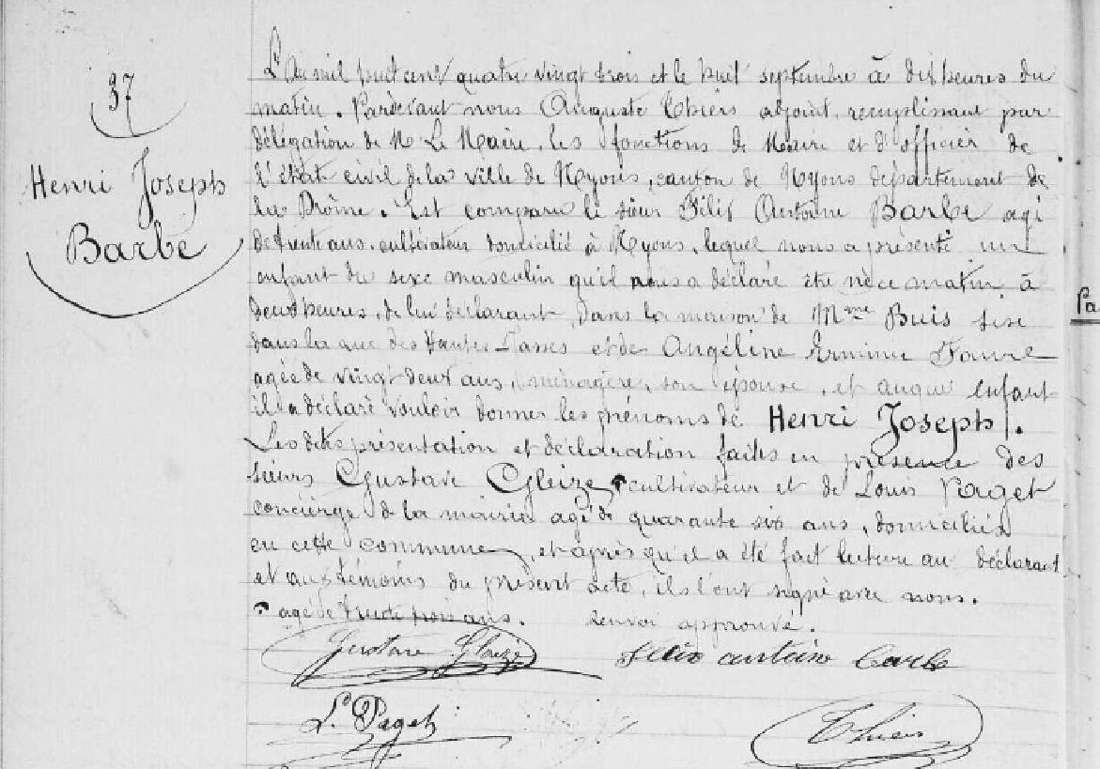 37
Henri Joseph
Barbe
L'an mil huit cent quatre vingt trois et le huit septembre à dix heures du
matin. Pardevant nous Auguste Thiers adjoint, remplissant par
délégation de M. Le Maire, les fonctions de Maire et d'officier de
l'état civil de la ville de Nyons, canton de Nyons département de
la Drôme. Est comparu le sieur Félix Antoine Barbe agé
de trente ans, cultivateur domicilié à Nyons, lequel nous a présenté un
enfant du sexe masculin qu'il nous a déclaré être né ce matin à
deux heures, de lui déclarant, dans la maison de Mme Buis sise
dans la rue des Hautes et de Angéline Erminie Faure
agée de vingt deux ans, ménagère, son épouse, et auquel enfant
il a déclaré vouloir donner les prénoms de Henri Joseph.
Les dites présentation et déclaration faites en présence des
sieurs Gustave Gleize cultivateur et de Louis Paget
concierge de la mairie agé de quarante six ans, domiciliés
en cette commune, et après qu'il a été fait lecture au déclarant
et aux témoins du présent acte, ils l'ont signé avec nous.
agé de trente trois ans. Renvoi approuvé.
Gustave Gleize Félix antoine barbe
L. Paget Thiers
Pa